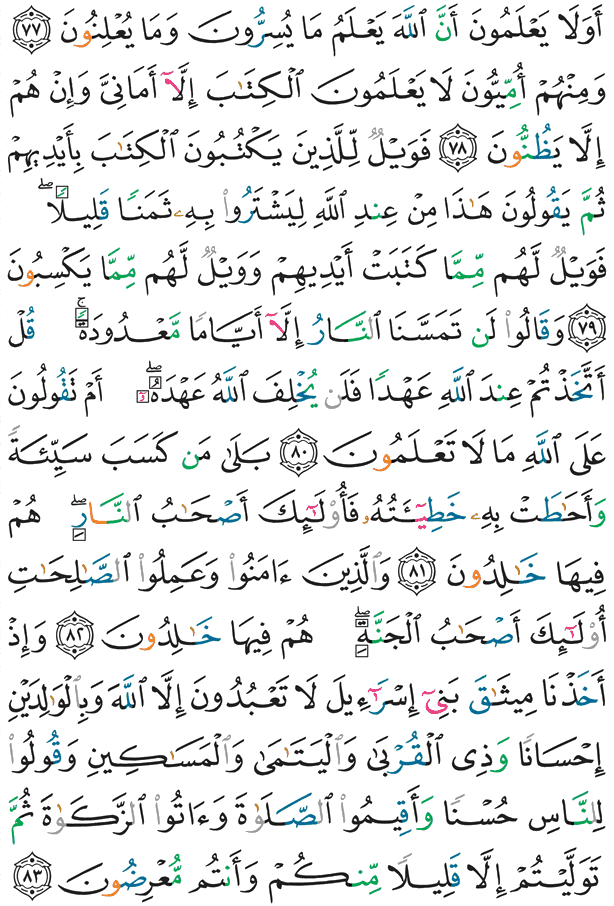 أَوَلَا يَعْلَمُونَ أَنَّ ٱللَّهَ يَعْلَمُ مَا يُسِرُّونَ وَمَا يُعْلِنُونَ ٧٧
وَمِنْهُمْ أُمِّيُّونَ لَا يَعْلَمُونَ ٱلْكِتَٰبَ إِلَّآ أَمَانِىَّ وَإِنْ هُمْ
إِلَّا يَظُنُّونَ ٧٨ فَوَيْلٌ لِّلَّذِينَ يَكْتُبُونَ ٱلْكِتَٰبَ بِأَيْدِيهِمْ
ثُمَّ يَقُولُونَ هَٰذَا مِنْ عِندِ ٱللَّهِ لِيَشْتَرُوا۟ بِهِۦ ثَمَنًا قَلِيلًا ۖ
فَوَيْلٌ لَّهُم مِّمَّا كَتَبَتْ أَيْدِيهِمْ وَوَيْلٌ لَّهُم مِّمَّا يَكْسِبُونَ
٧٩ وَقَالُوا۟ لَن تَمَسَّنَا ٱلنَّارُ إِلَّآ أَيَّامًا مَّعْدُودَةً ۚ قُلْ
أَتَّخَذْتُمْ عِندَ ٱللَّهِ عَهْدًا فَلَن يُخْلِفَ ٱللَّهُ عَهْدَهُۥٓ ۖ أَمْ تَقُولُونَ
عَلَى ٱللَّهِ مَا لَا تَعْلَمُونَ ٨٠ بَلَىٰ مَن كَسَبَ سَيِّئَةً
وَأَحَٰطَتْ بِهِۦ خَطِيٓـَٔتُهُۥ فَأُو۟لَٰٓئِكَ أَصْحَٰبُ ٱلنَّارِ ۖ هُمْ
فِيهَا خَٰلِدُونَ ٨١ وَٱلَّذِينَ ءَامَنُوا۟ وَعَمِلُوا۟ ٱلصَّٰلِحَٰتِ
أُو۟لَٰٓئِكَ أَصْحَٰبُ ٱلْجَنَّةِ ۖ هُمْ فِيهَا خَٰلِدُونَ ٨٢ وَإِذْ
أَخَذْنَا مِيثَٰقَ بَنِىٓ إِسْرَٰٓءِيلَ لَا تَعْبُدُونَ إِلَّا ٱللَّهَ وَبِٱلْوَٰلِدَيْنِ
إِحْسَانًا وَذِى ٱلْقُرْبَىٰ وَٱلْيَتَٰمَىٰ وَٱلْمَسَٰكِينِ وَقُولُوا۟
لِلنَّاسِ حُسْنًا وَأَقِيمُوا۟ ٱلصَّلَوٰةَ وَءَاتُوا۟ ٱلزَّكَوٰةَ ثُمَّ
تَوَلَّيْتُمْ إِلَّا قَلِيلًا مِّنكُمْ وَأَنتُم مُّعْرِضُونَ ٨٣